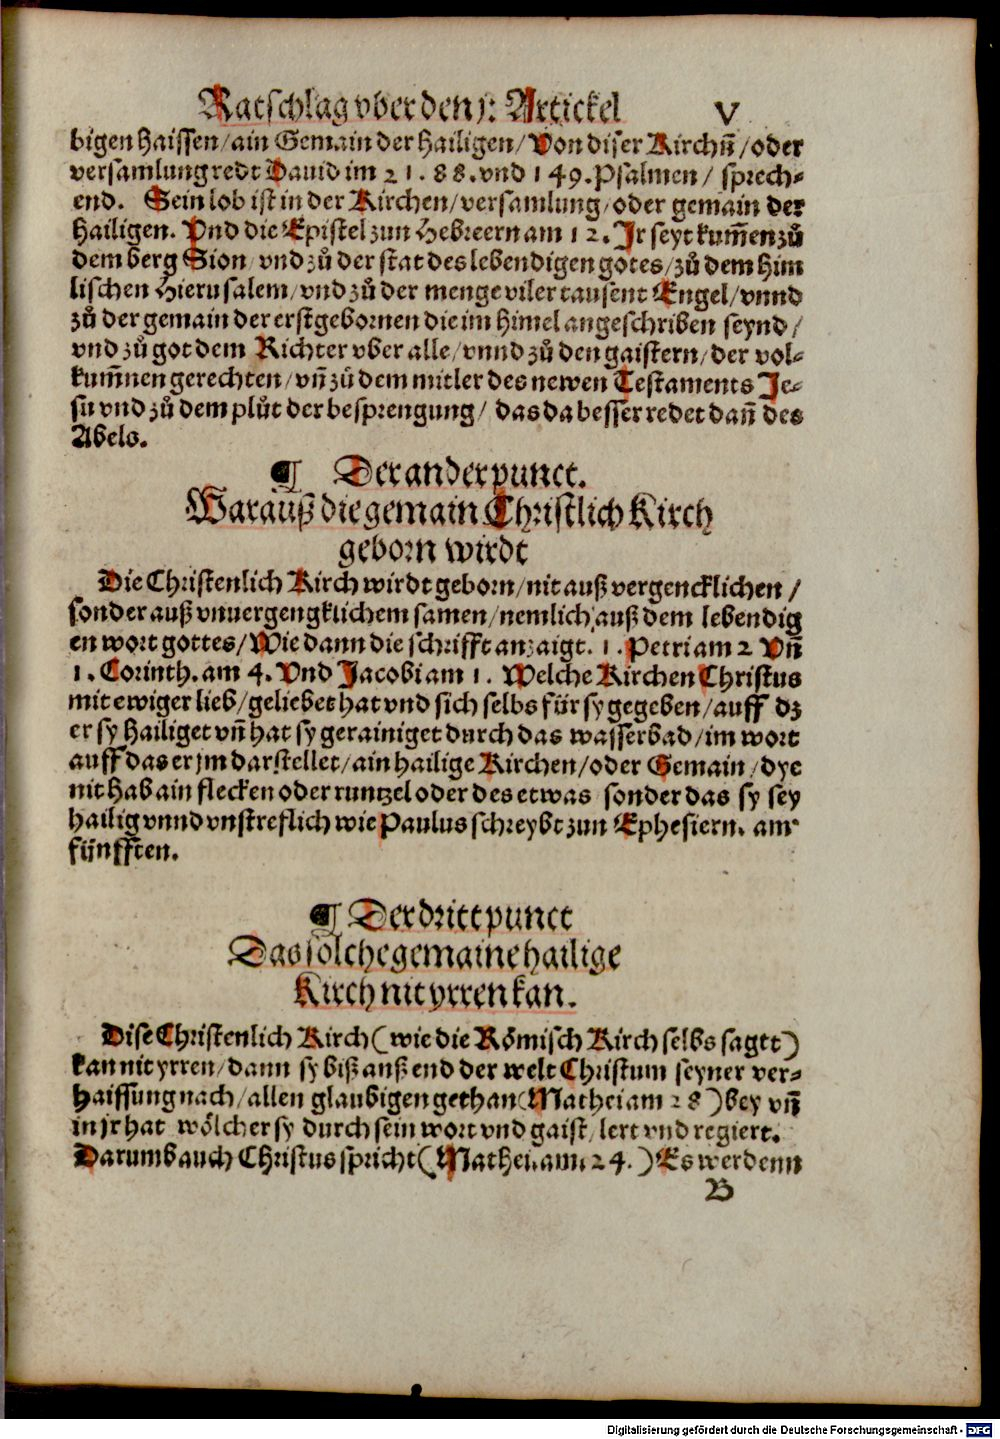 Ratschlag vber den 1: Artickel V
bigen haissen / ain Gemain der hailigen / Von diser Kirchñ / oder
versamlung redt Dauid im 21. 88. vnd 149. Psalmen / sprech-
end. Sein lob ist in der Kirchen / versamlung / oder gemain der
hailigen. Vnd die Epistel zun Hebreern am 12. Jr seyt kum̃en zů
dem berg Sion / vnd zů der stat des lebendigen gotes / zů dem him
lischen Hierusalem / vnd zů der menge viler tausent Engel / vnnd
zů der gemain der erstgebornen die im himel angeschriben seynd /
vnd zů got dem Richter vber alle / vnnd zů den gaistern / der vol-
kum̃nen gerechten / vñ zů dem mitler des newen Testaments Je-
su vnd zů dem plůt der besprengung / das da besser redet dañ des
Abels.
¶ Der ander punct.
Warauß die gemain Christlich Kirch
geborn wirdt
Die Christenlich Kirch wirdt geborn / nit auß vergencklichen /
sonder auß vnuergengklichem samen / nemlich / auß dem lebendig
en wort gottes / Wie dann die schrifft anzaigt. 1. Petri am 2 Vñ
1. Corinth. am 4. Vnd Jacobi am 1. Welche Kirchen Christus
mit ewiger lieb / geliebet hat vnd sich selbs für sy gegeben / auff dz
er sy hailiget vñ hat sy gerainiget durch das wasserbad / im wort
auff das er jm darstellet / ain hailige Kirchen / oder Gemain / dye
nit hab ain flecken oder runtzel oder des etwas sonder das sy sey
hailig vnnd vnstreflich wie Paulus schreybt zun Ephesiern. am
fünfften.
¶ Der dritt punct
Das solche gemaine hailige
Kirch nit yrren kan.
Dise Christenlich Kirch (wie die Römisch Kirch selbs sagtt)
kan nit yrren / dann sy biß anß end der welt Christum seyner ver-
haissung nach / allen glaubigen gethan (Mathei am 28) bey vñ
in jr hat wölcher sy durch sein wort vnd gaist / lert vnd regiert.
Darumb auch Christus spricht (Mathei. am. 24.) Es werdenn
B
Digitalisierung gefördert durch die Deutsche Forschungsgemeinschaft - DFG